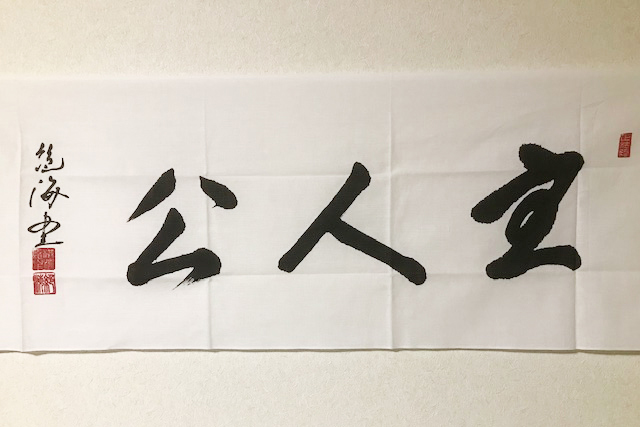 主人公
海書